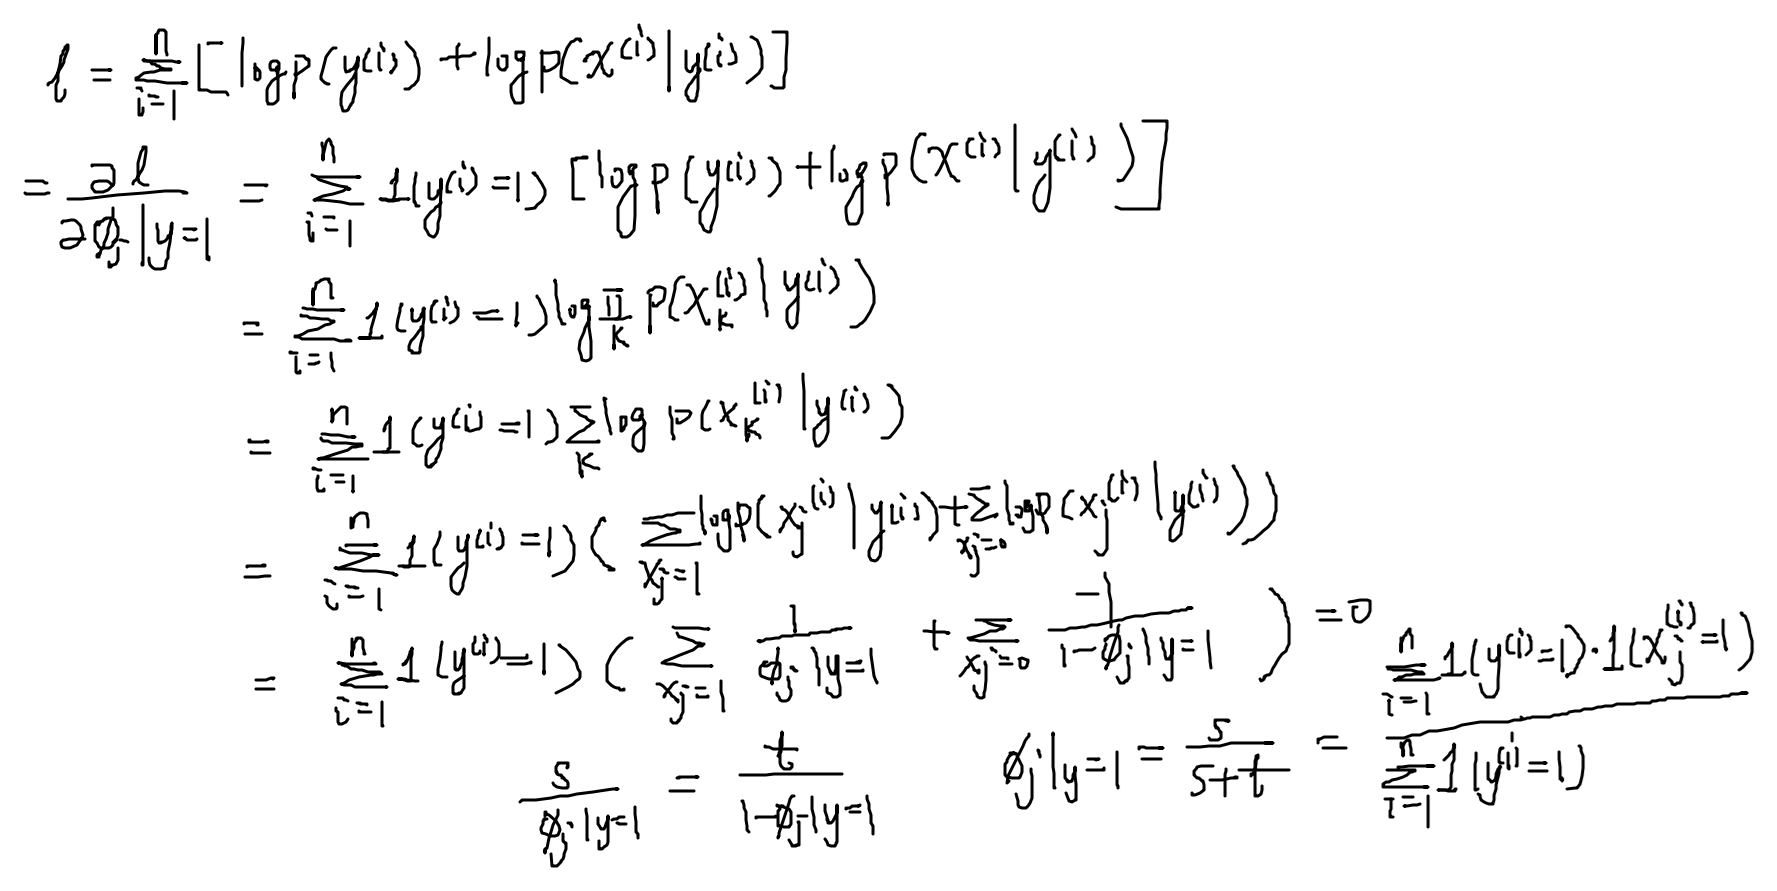 ℓ = ∑_{i=1}^{n} [log p(y^{(i)}) + log p(x^{(i)}|y^{(i)})]
= ∂ℓ/∂ϕ_j|y=1 = ∑_{i=1}^{n} 1(y^{(i)}=1) [log p(y^{(i)}) + log p(x^{(i)}|y^{(i)})]
= ∑_{i=1}^{n} 1(y^{(i)}=1) log ∏_k p(x_k^{(i)}|y^{(i)})
= ∑_{i=1}^{n} 1(y^{(i)}=1) ∑_k log p(x_k^{(i)}|y^{(i)})
= ∑_{i=1}^{n} 1(y^{(i)}=1) ( ∑_{x_j=1} log p(x_j^{(i)}|y^{(i)}) + ∑_{x_j=0} log p(x_j^{(i)}|y^{(i)}))
= ∑_{i=1}^{n} 1(y^{(i)}=1) ( ∑_{x_j=1} 1/(ϕ_j|y=1) + ∑_{x_j=0} -1/(1-ϕ_j|y=1) ) = 0
s/(ϕ_j|y=1) = t/(1-ϕ_j|y=1)
ϕ_j|y=1 = s/(s+t) = (∑_{i=1}^{n} 1(y^{(i)}=1)·1(x_j^{(i)}=1))/(∑_{i=1}^{n} 1(y^{(i)}=1))